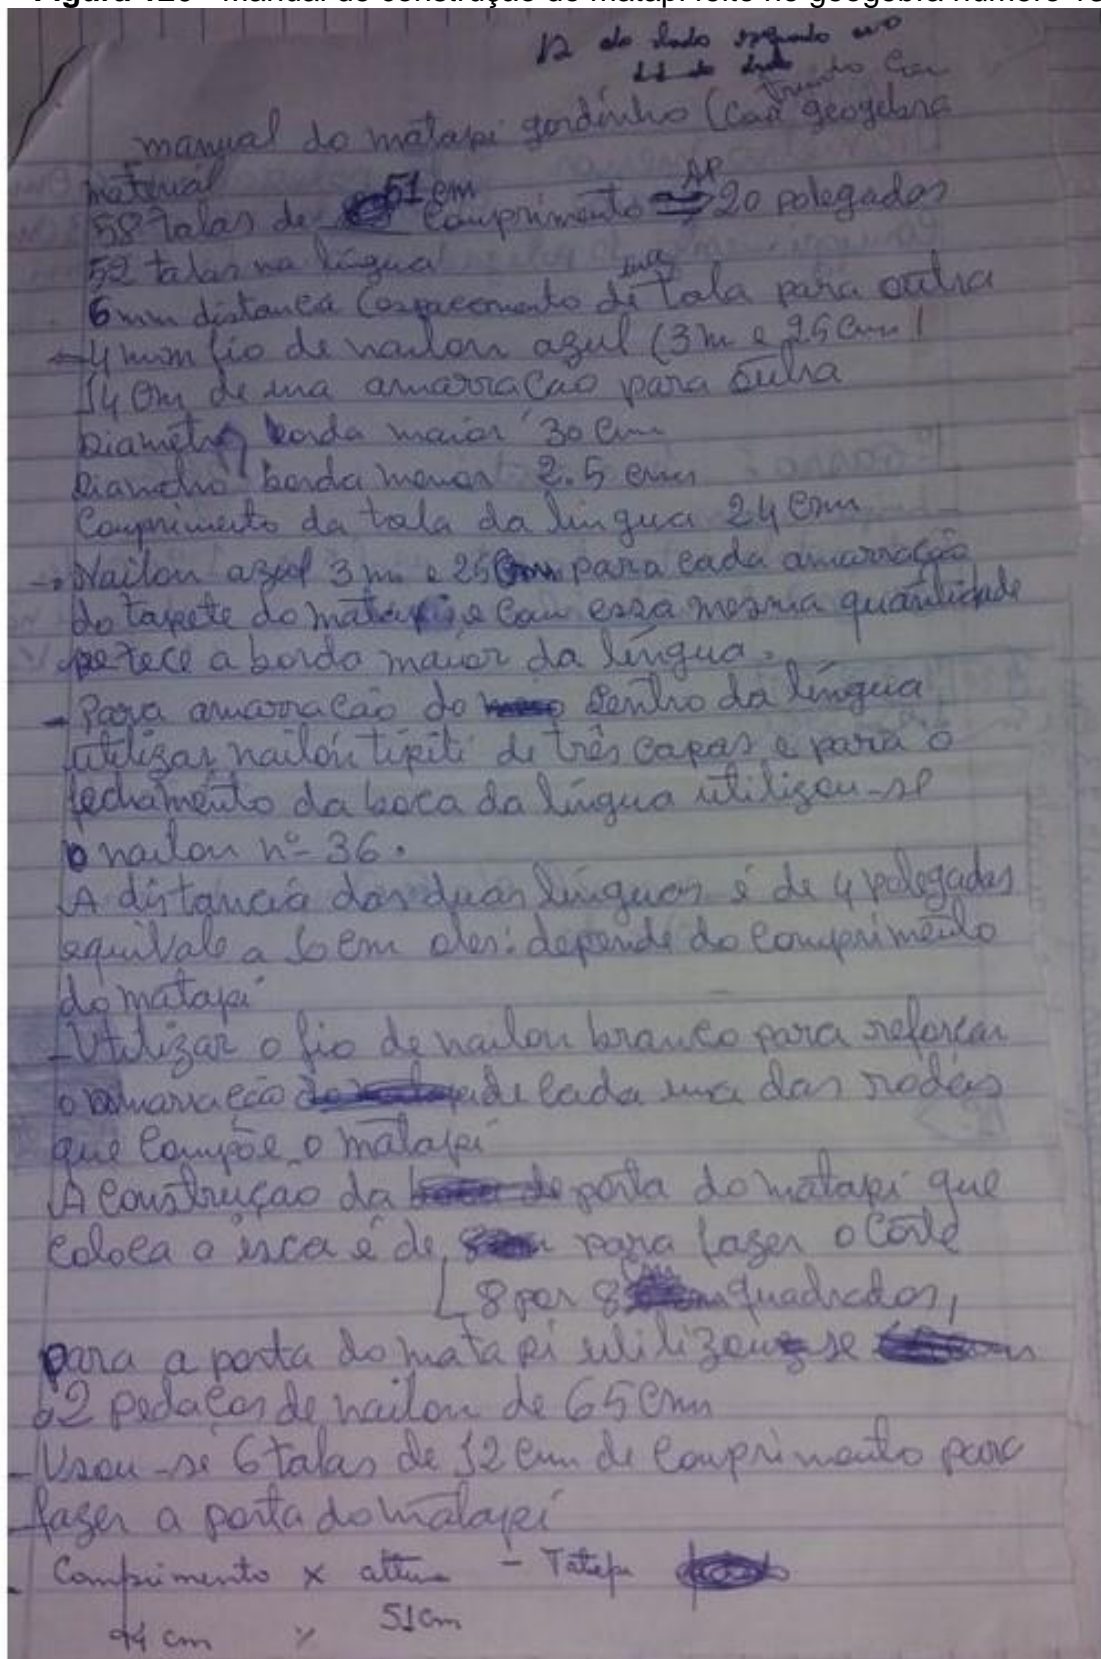 12 do lado segundo
11 do lado
Trando Com
manual do matapi gordinho (Com geogebra
material
58 talas de 51 cm Comprimento => AP 20 polegadas
52 talas na língua
6 mm distancia (espacemento de uma tala para outra
- 4 mm fio de nailon azul (3 m e 25 cm)
14 cm de uma amarração para outra
Diametro borda maior 30 cm
Diametro borda menor 2.5 cm
Comprimento da tala da lingua 24 cm
- Nailon azul 3 m e 25 cm para cada amarração
do tapete do matapi e com essa mesma quantidade
se tece a borda maior da lingua.
- Para amarração do Dentro da lingua
utilizar nailon tipiti de três capas e para o
fechamento da boca da língua utilizou-se
o nailon nº 36.
A distancia das duas línguas é de 4 polegadas
equivale a 10 cm obs: depende do comprimento
do matapi
- Utilizar o fio de nailon branco para reforçar
a amarração de cada uma das rodas
que Compõe o matapi
A construção da porta do matapi que
coloca a isca é de para fazer o corte
8 por 8 cm quadrados,
para a porta do matapi utilizou-se
2 pedaços de nailon de 65 cm
- Usou-se 6 talas de 12 cm de comprimento para
fazer a porta do matapi
- Comprimento x altura -
94 cm x 51 cm